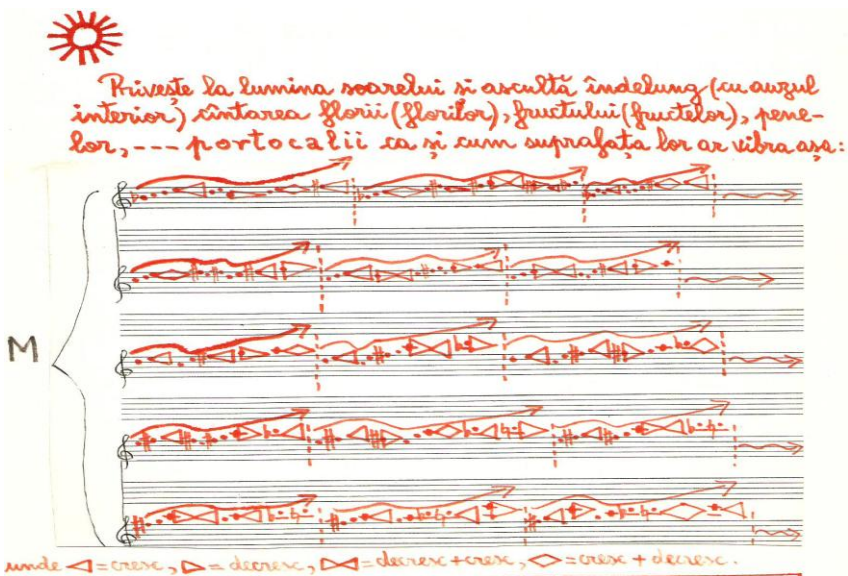 Privește la lumina soarelui si ascultă îndelung (cu auzul
interior) cîntarea florii (florilor), fructului (fructelor), pene-
lor, --- portocalii ca și cum suprafața lor ar vibra așa:
M
unde ◁=cresc, ▷=decresc, ▷◁=decresc+cresc, ◇=cresc+decresc.